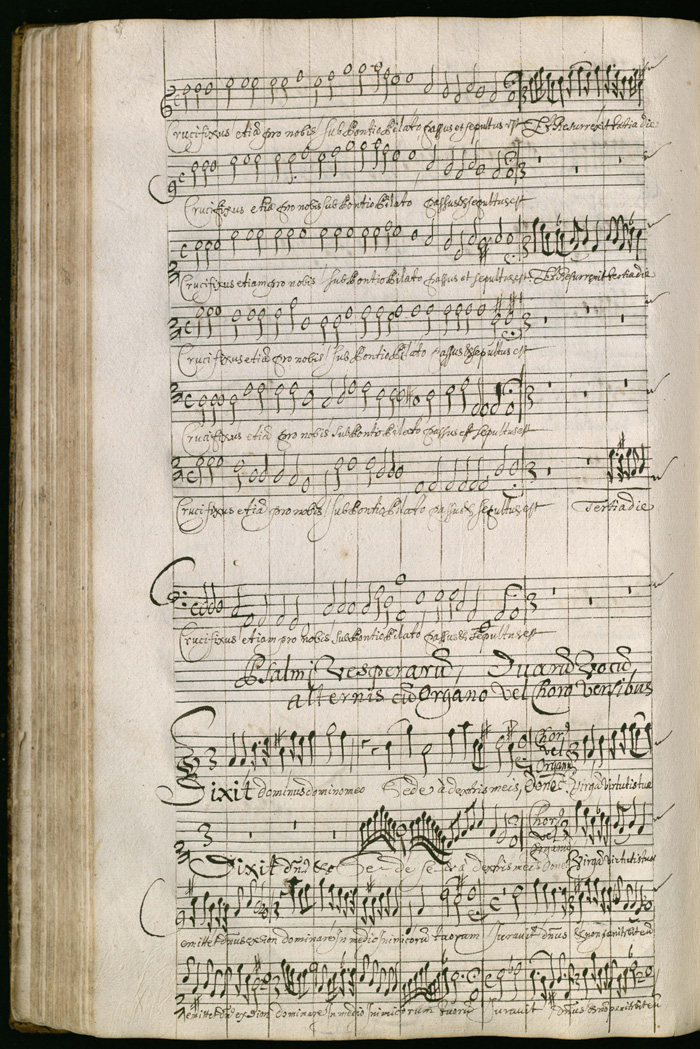 Crucifixus etiā pro nobis sub Pontio Pilato passus et sepultus est Et Resurrexit tertia die
Crucifixus etiā pro nobis sub Pontio Pilato passus & sepultus est
Crucifixus etiam pro nobis sub Pontio Pilato passus et sepultus est Et Resurrexit tertia die
Crucifixus etiā pro nobis sub Pontio Pilato passus & sepultus est
Crucifixus etiā pro nobis sub Pontio Pilato passus est sepultus est
Crucifixus etiā pro nobis sub Pontio Pilato passus & sepultus est Tertia die
Crucifixus etiam pro nobis sub Pontio Pilato passus & sepultus est
Psalmi Vesperarū, Quatuor Vocū
alternis cū Organo vel Choro versibus
Chorꝰ
vel
Organū
Dixit dominus domino meo Sede à dextris meis, Donec Virgā Virtutis tuæ
Chorꝰ
vel
Organū
Dixit dn̄s &c Sede sede a dextris meis Donec Virgā Virtutis tuæ
emittet dn̄us ex sion dominare in medio inimicorū tuorum Juravit dn̄us & non pœnitebit eū
emittet dn̄s ex sion dominare in medio inimicorum tuorū Juravit dn̄us & non pœnitebit eū